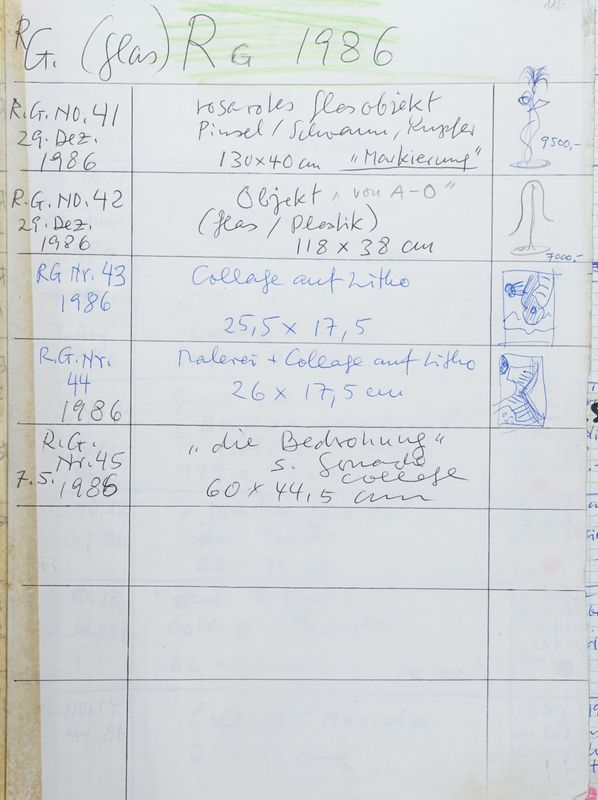 116
RG. (glas) RG 1986
R.G. NO. 41
29. Dez.
1986
rosarotes glasobjekt
Pinsel / Schwamm, Kupfer
130x40 cm „Markierung"
9500,-
R.G. NO. 42
29. Dez.
1986
Objekt „von A-O"
(glas / Plastik)
118 x 38 cm
7000,-
RG Nr. 43
1986
Collage auf Litho
25,5 x 17,5
R.G. Nr.
44
1986
Malerei + Collage auf Litho
26 x 17,5 cm
R.G.
Nr. 45
7.5. 1986
„die Bedrohung"
s.
collage
60 x 44,5 cm